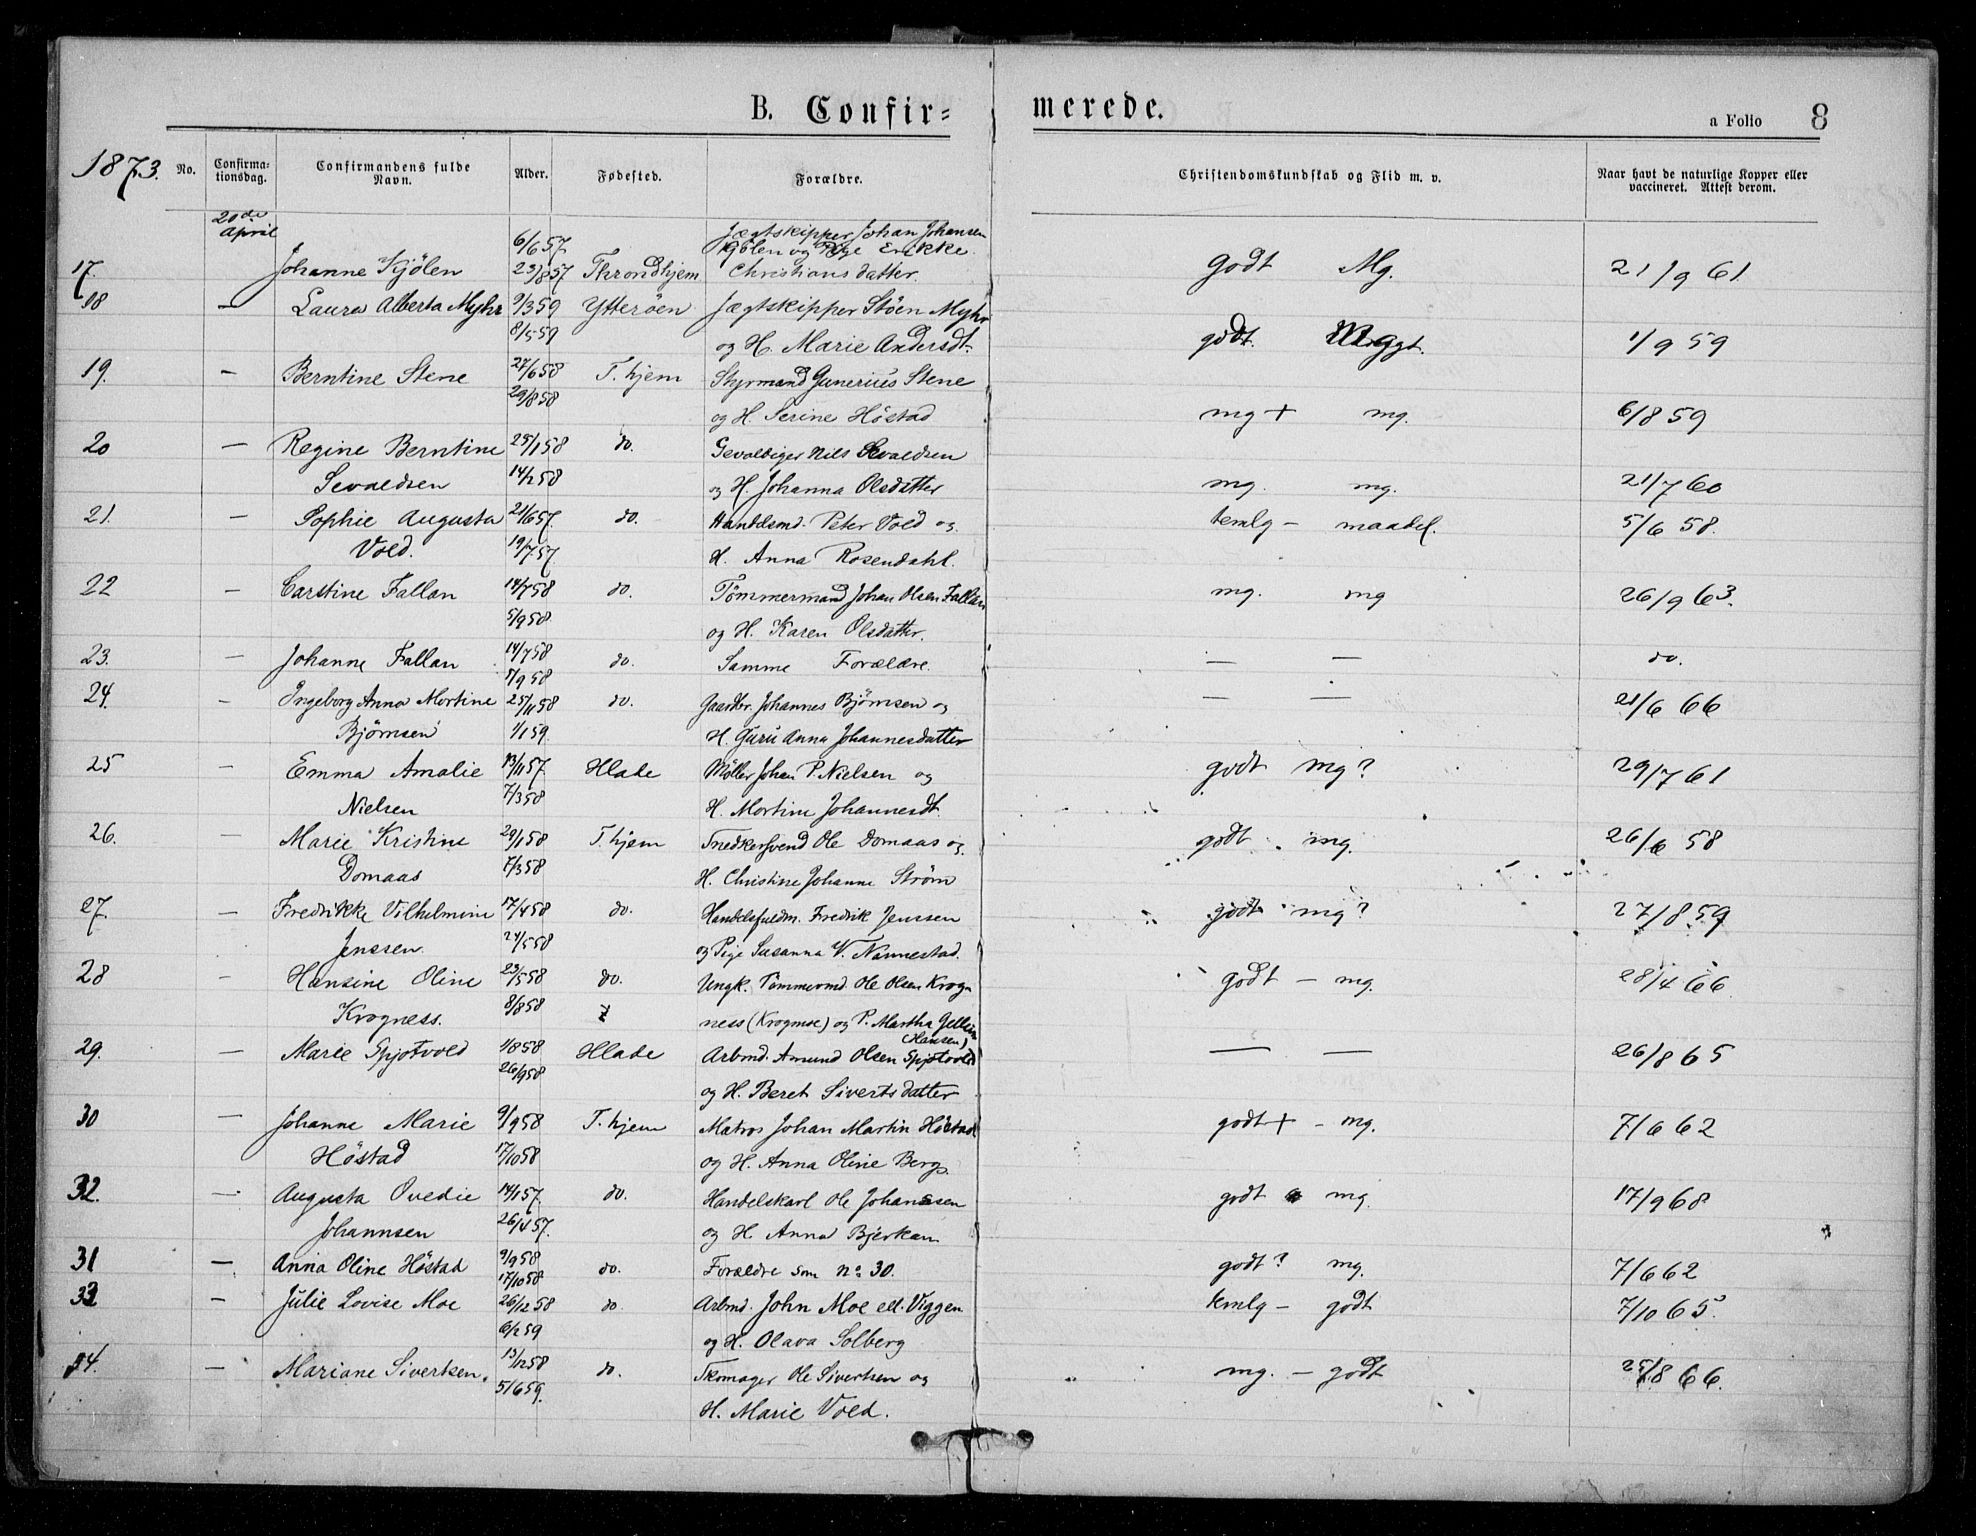 B. Confir= merede.
a Folio 8
1873. No. Confirma-tionsdag. Confirmandens fulde Navn. Alder. Fødested. Forældre. Christendomskundskab og Flid m. v. Naar havt de naturlige Kopper eller vaccineret. Attest derom.
20de April 6/6 57 Jægtskipper Johan Johansen
Kjølen og Pige Erikke
17. Johanne Kjölen 23/8 57 Throndhjem Christiansdatter. godt Mg. 21/9 61
18 — Laura Alberta Myhr 9/3 59 Ytterøen Jægtskipper Støen Myhr
8/5 59 og H. Marie Andersdt. godt. Mggt. 1/9 59
19. — Berntine Stene 27/6 58 T.hjem Styrmand Gunerius Stene
29/8 58 og H. Serine Höstad mg + mg. 6/8 59
20 — Regine Berntine 25/1 58 do. Gevaldiger Nils Sevaldsen
Sevaldsen 14/2 58 og H. Johanna Olsdatter mg. mg. 21/7 60
21. — Sophie Augusta 21/6 57. do. Handelsmd. Peter Vold og temlg — maadel. 5/6 58.
Vold. 19/7 57 H. Anna Rosendahl.
22 — Carstine Fallan 14/7 58 do. Tømmermand Johan Olsen Fallan mg. mg 26/9 63.
5/9 58 og H. Karen Olsdatter.
23. — Johanne Fallan 14/7 58 do. Samme Forældre. — — do.
5/9 58
24. — Ingeborg Anna Mortine 25/11 58 do. Gaardbr. Johannes Bjørnsen og — — 21/6 66
Bjørnsen 1/1 59. H. Guru Anna Johannesdatter
25 — Emma Amalie 13/11 57 Hlade Møller Johan P. Nielsen og godt mg? 29/7 61
Nielsen 7/3 58 H. Mortine Johannesdt.
26. — Marie Kristine 29/1 58 T.hjem Snedkersvend Ole Domaas og godt . mg. 26/6 58
Domaas 7/3 58 H. Christine Johanne Strøm
27. — Fredrikke Vilhelmine 17/4 58 do. Handelsfuldm. Fredrik Jenssen godt mg? 27/8 59
Jenssen. 24/5 58 og Pige Susanna V. Nannestad.
28 — Hansine Oline 23/5 58 do. Ungk. Tømmermd. Ole Olsen Krog- godt — mg. 28/4 66
Krogness. 8/8 58 ness (Krogmoe) og P. Martha Gelline
(Hansen)
29. — Marie Spjotvold 1/8 58 Hlade Arbmd. Amund Olsen Spjotvold — — 26/8 65
26/9 58 og H. Beret Sivertsdatter
30 — Johanne Marie 9/9 58 T.hjem Matros Johan Martin Höstad godt + – mg. 7/6 62
Höstad 17/10 58 og H. Anna Oline Berg.
32. — Augusta Ovedie 14/1 57. do. Handelskarl Ole Johanssen godt mg. 17/9 68
Johannsen 26/4 57. og H. Anna Bjerkan
31 — Anna Oline Höstad 9/9 58 do. Forældre som No 30. godt? mg. 7/6 62
17/10 58
33 — Julie Lovise Moe 26/12 58 do Arbmd. John Moe ell. Viggen temlg — godt 7/10 65.
6/2 59 og H. Olava Solberg
34. — Mariane Sivertsen. 13/12 58 do. Skomager Ole Sivertsen og mg. — godt 25/8 66.
5/6 59. H. Marie Vold.